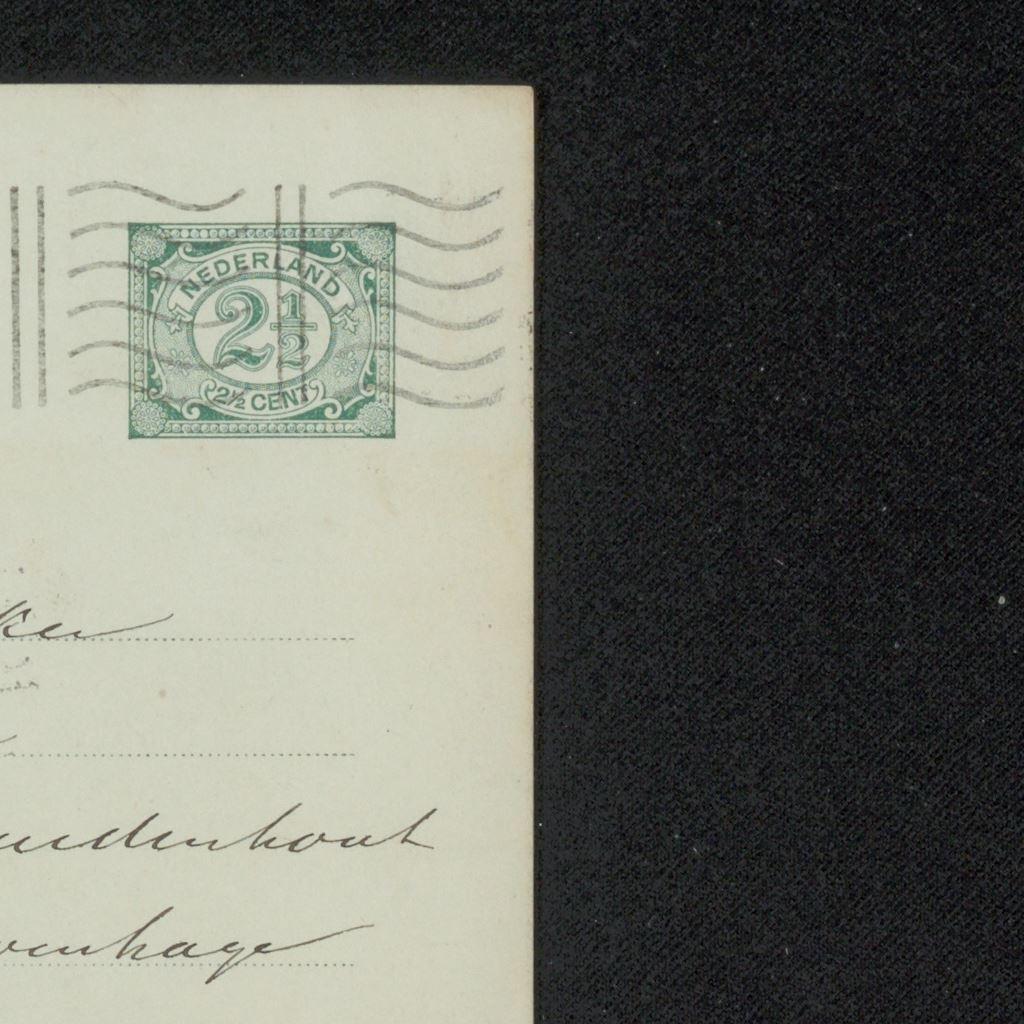 NEDERLAND
2 1/2
2½ CENT
ker
udenhout
venhage